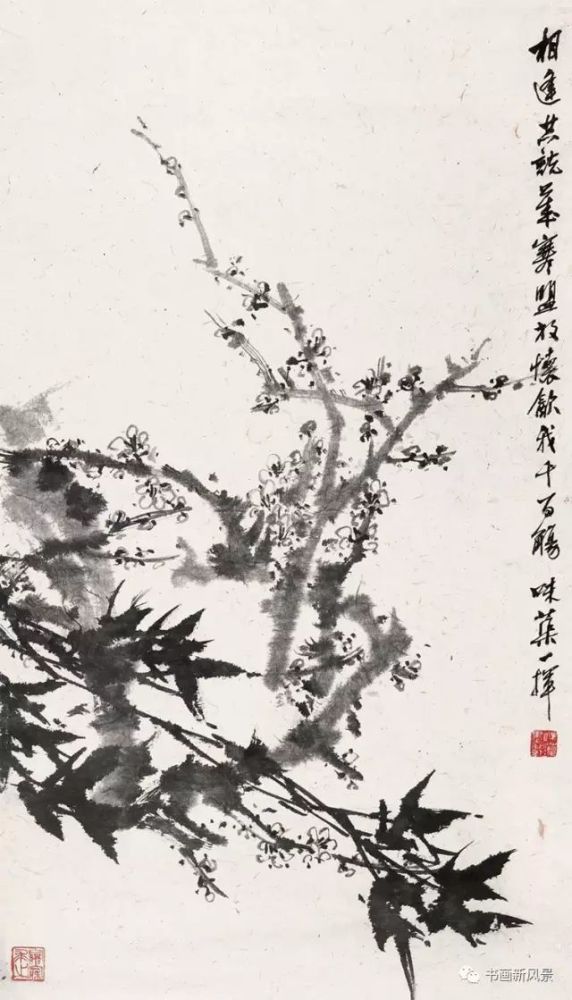 相逢共說歲寒盟放懷飲我千百觴 味蕖一揮
书画新风景